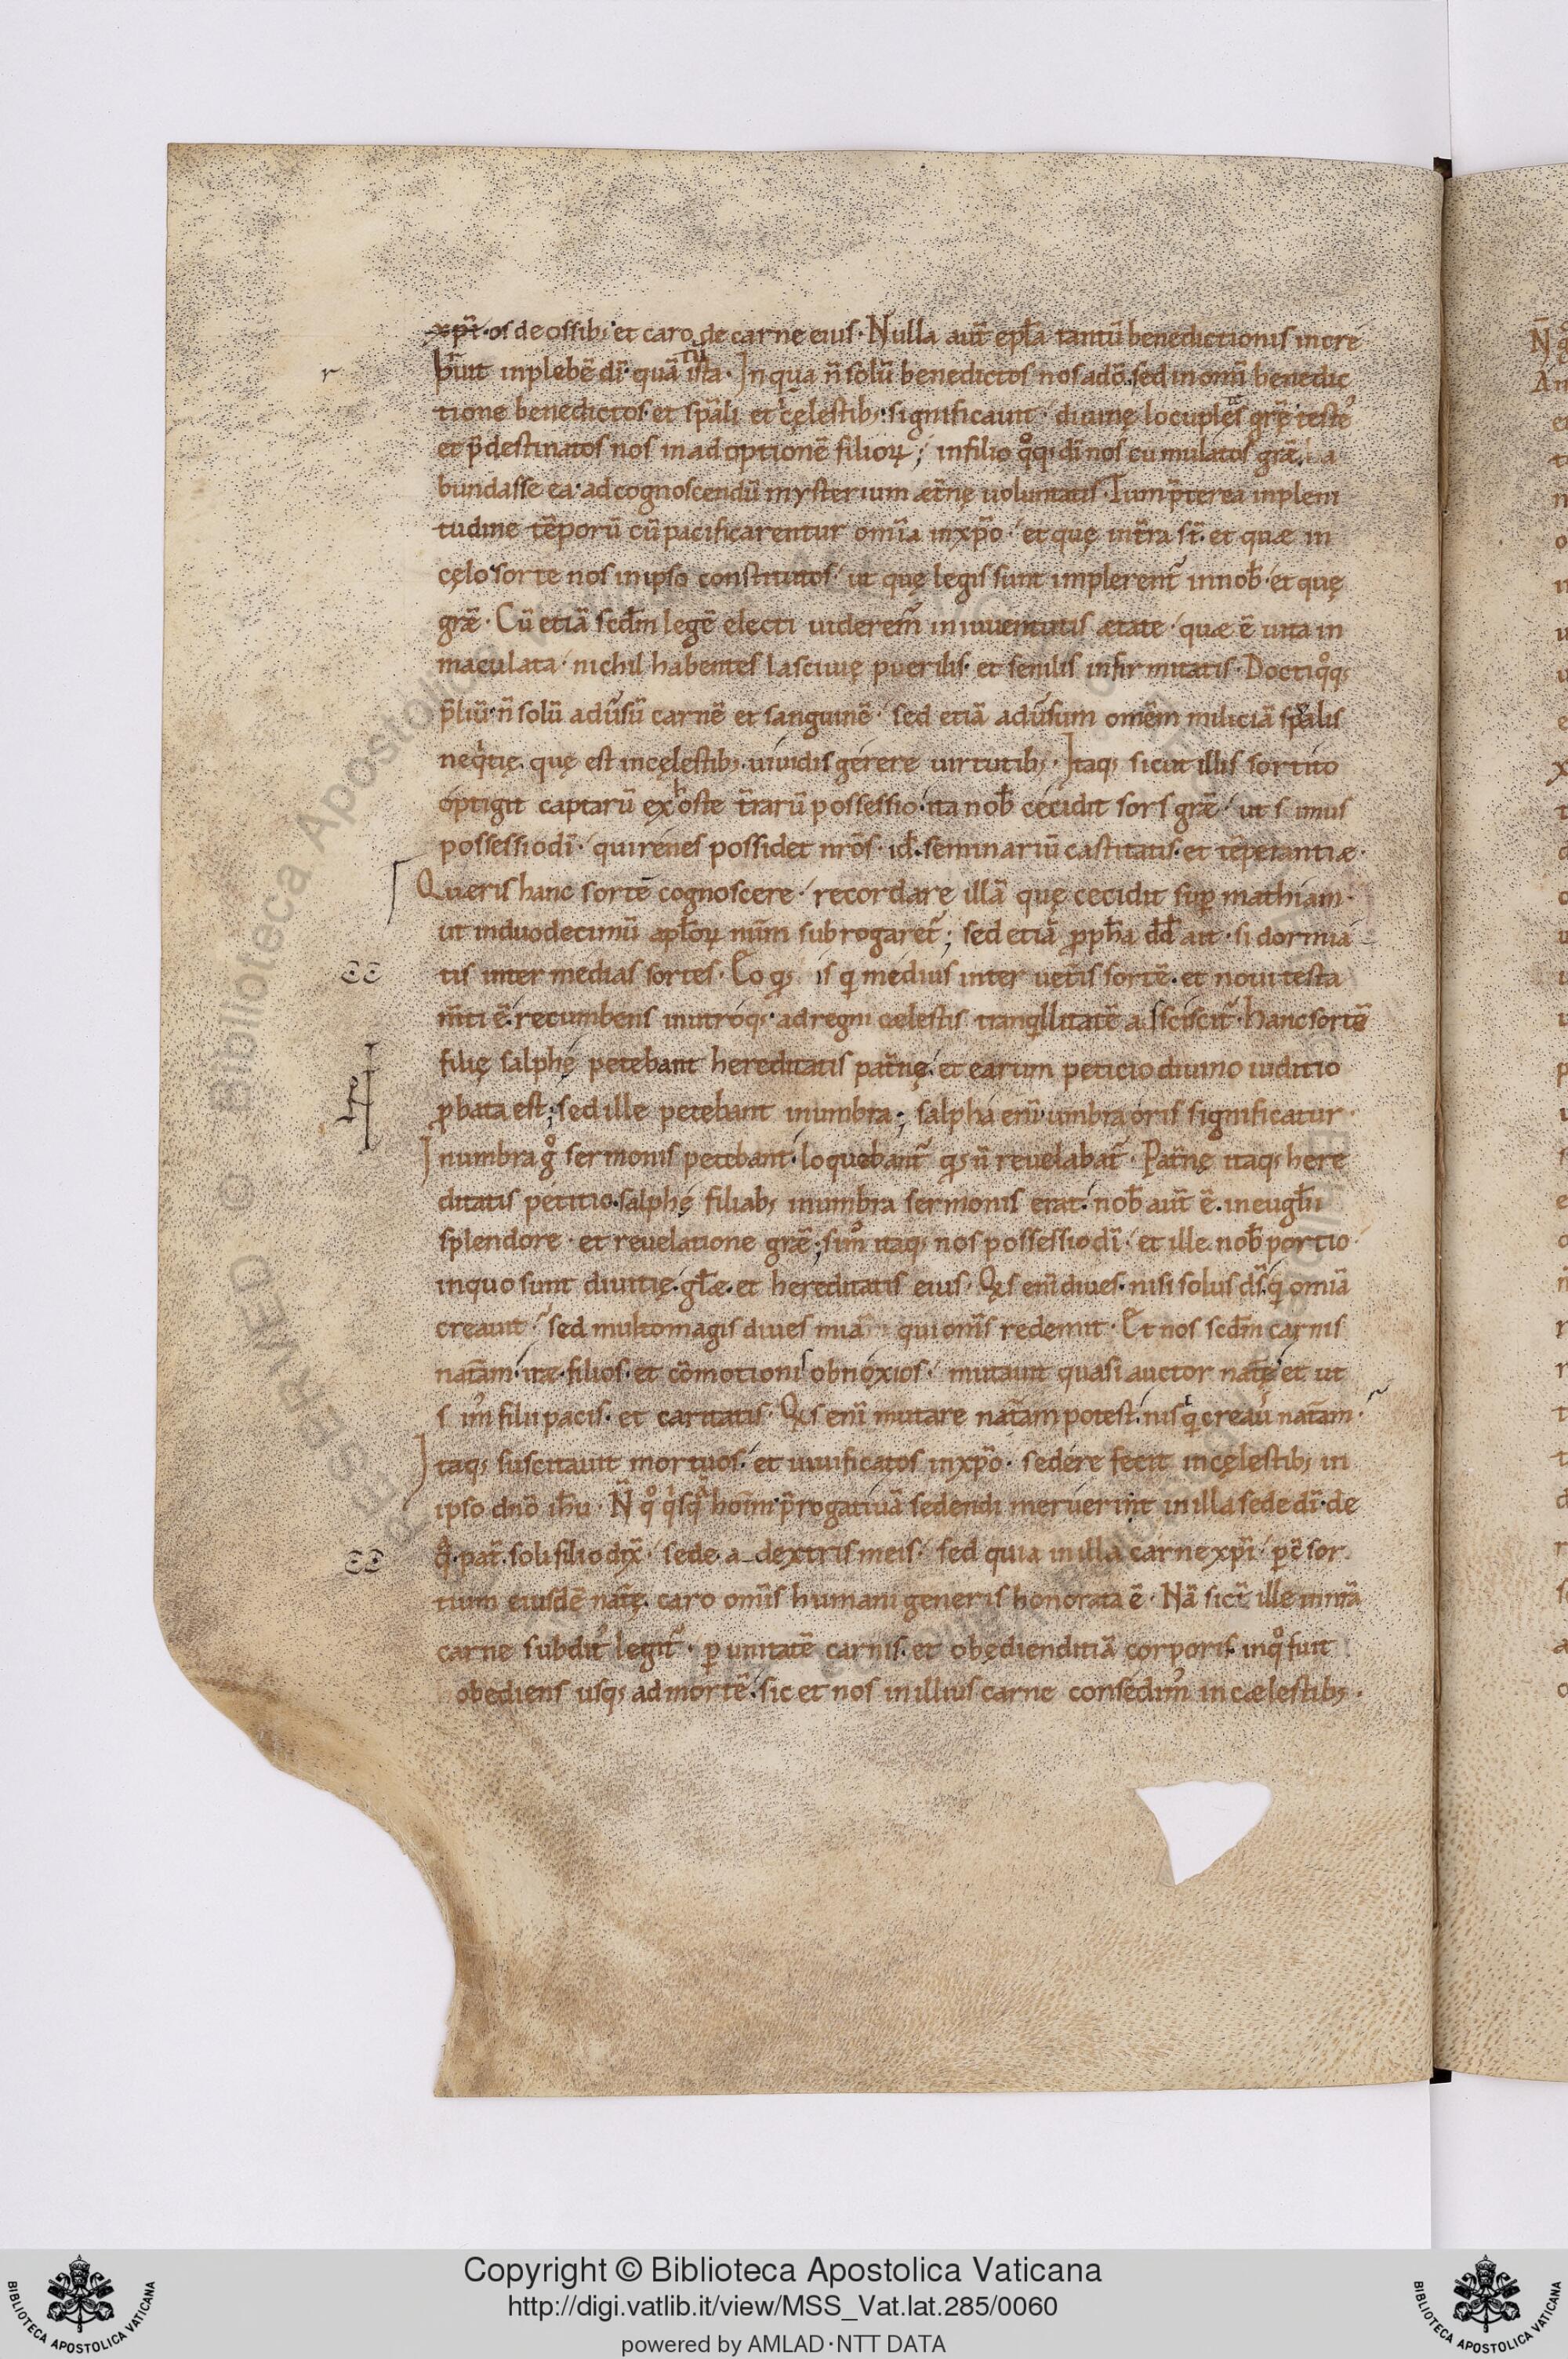 xp̄i· os de ossib; et caro de carne eius· Nulla aut̄ epl̄a tantū benedictionis incre
buit inplebē dī· quā ista· Inqua n̄ solū benedictos nos adō· sed in omī benedic
tione benedictos· et sp̄ali et cęlestib; significauit· diuinę locuples grę̄ testẽ
et p̄destinatos nos inadoptionē filioꝝ; infilio qͦq; dī nos cumulatos grā· a
bundasse ea· ad cognoscendū mysterium æt̄nę uoluntatis· Tum p̄terea inpleni
tudine tēporū cū pacificarentur omīa inxp̄o· et quę int̄ra st̄· et quæ in
cęlo sorte nos inipso constitutos· ut quę legis sunt implerent̄ innob̄· et quę
grā̄e· Cū etiā scd̄m legē electi uiderem̄ iniuuentutis ætate· quæ ē uita in
maculata· nichil habentes lasciuię puerilis· et senilis infirmitatis· Doctiqͦq;
p̄liū· n̄ solū adūsū carnē et sanguinē· sed etiā adūsum omēm miliciā sp̄alis
neqͥtię· quę est incęlestib; uiuidis gerere uirtutib;· Itaq; sicut illis sortito
optigit captarū ex hoste t̄rarū possessio· ita nob̄ cecidit sors grā̄e· ut simus
possessio dī· qui renes possidet nr̄os· id̄· seminariū castitatis· et tēperantiæ·
Queris hanc sortē cognoscere· recordare illā quę cecidit suꝑ mathiam·
ut induodecimū apl̄oꝝ num̄ subrogaret̄; sed etiā ꝓph̄a dd̄ ait· si dormia
tis inter medias sortes· Eo qͥ is qͥ medius inter uet̄is sortē· et noui testa
m̄ti ē recumbens inutroq; ad regni cælestis tranqͥllitatē adsciscit̄· hanc sortē
filię salphę petebant hereditatis pat̄nę· et earum peticio diuino iuditio
ꝓbata est; sed ille petebant inumbra; salpha enī umbra oris significatur·
Inumbra gͦ sermonis petebant· loquebant̄ qͥ n̄ reuelabat̄· Pat̄nę itaq; here
ditatis petitio· salphę filiab; inumbra sermonis erat· nob̄ aut̄ ē· ineugl̄ii
splendore· et reuelatione grā̄e; sumͦ itaq; nos possessio dī· et ille nob̄ portio
inquo sunt diuitię· gl̄æ· et hereditatis eius· Qͥs enī diues· nisi solus ds̄ qͥ omīa
creauit· sed multomagis diues mīa qui omīs redemit· Et nos scd̄m carnis
nat̄am· iræ filios· et cōmotionis obnoxios· mutauit quasi auctor nat̄ę et ut
sim̄ filii pacis· et caritatis· Qͥs enī mutare nat̄am potest· nisi qͥ creaū nat̄am·
Itaq; suscitauit mortuos· et uiuificatos inxp̄o· sedere fecit incęlestib; in
ipso dn̄o ih̄u· N̄ qͦ qͥsqͣ hoīm p̄rogatiuā sedendi meruerint inilla sede dī· de
qͣ· pat̄· soli filio dix̄· sede a dextris meis· sed quia inilla carne xp̄i· ꝑ c̄sor
tium eiusdē nat̄ę· caro omīs humani generis honorata ē· Nā sict̄ ille innr̄a
carne subdit̄ legit̄· ꝑ unitatē carnis· et obędienditiā corporis· inqͦ fuit
obędiens usq; admortē· sic et nos inillius carne consedim̄ incælestib;·
Copyright © Biblioteca Apostolica Vaticana
http://digi.vatlib.it/view/MSS_Vat.lat.285/0060
powered by AMLAD·NTT DATA
BIBLIOTECA APOSTOLICA VATICANA
BIBLIOTECA APOSTOLICA VATICANA